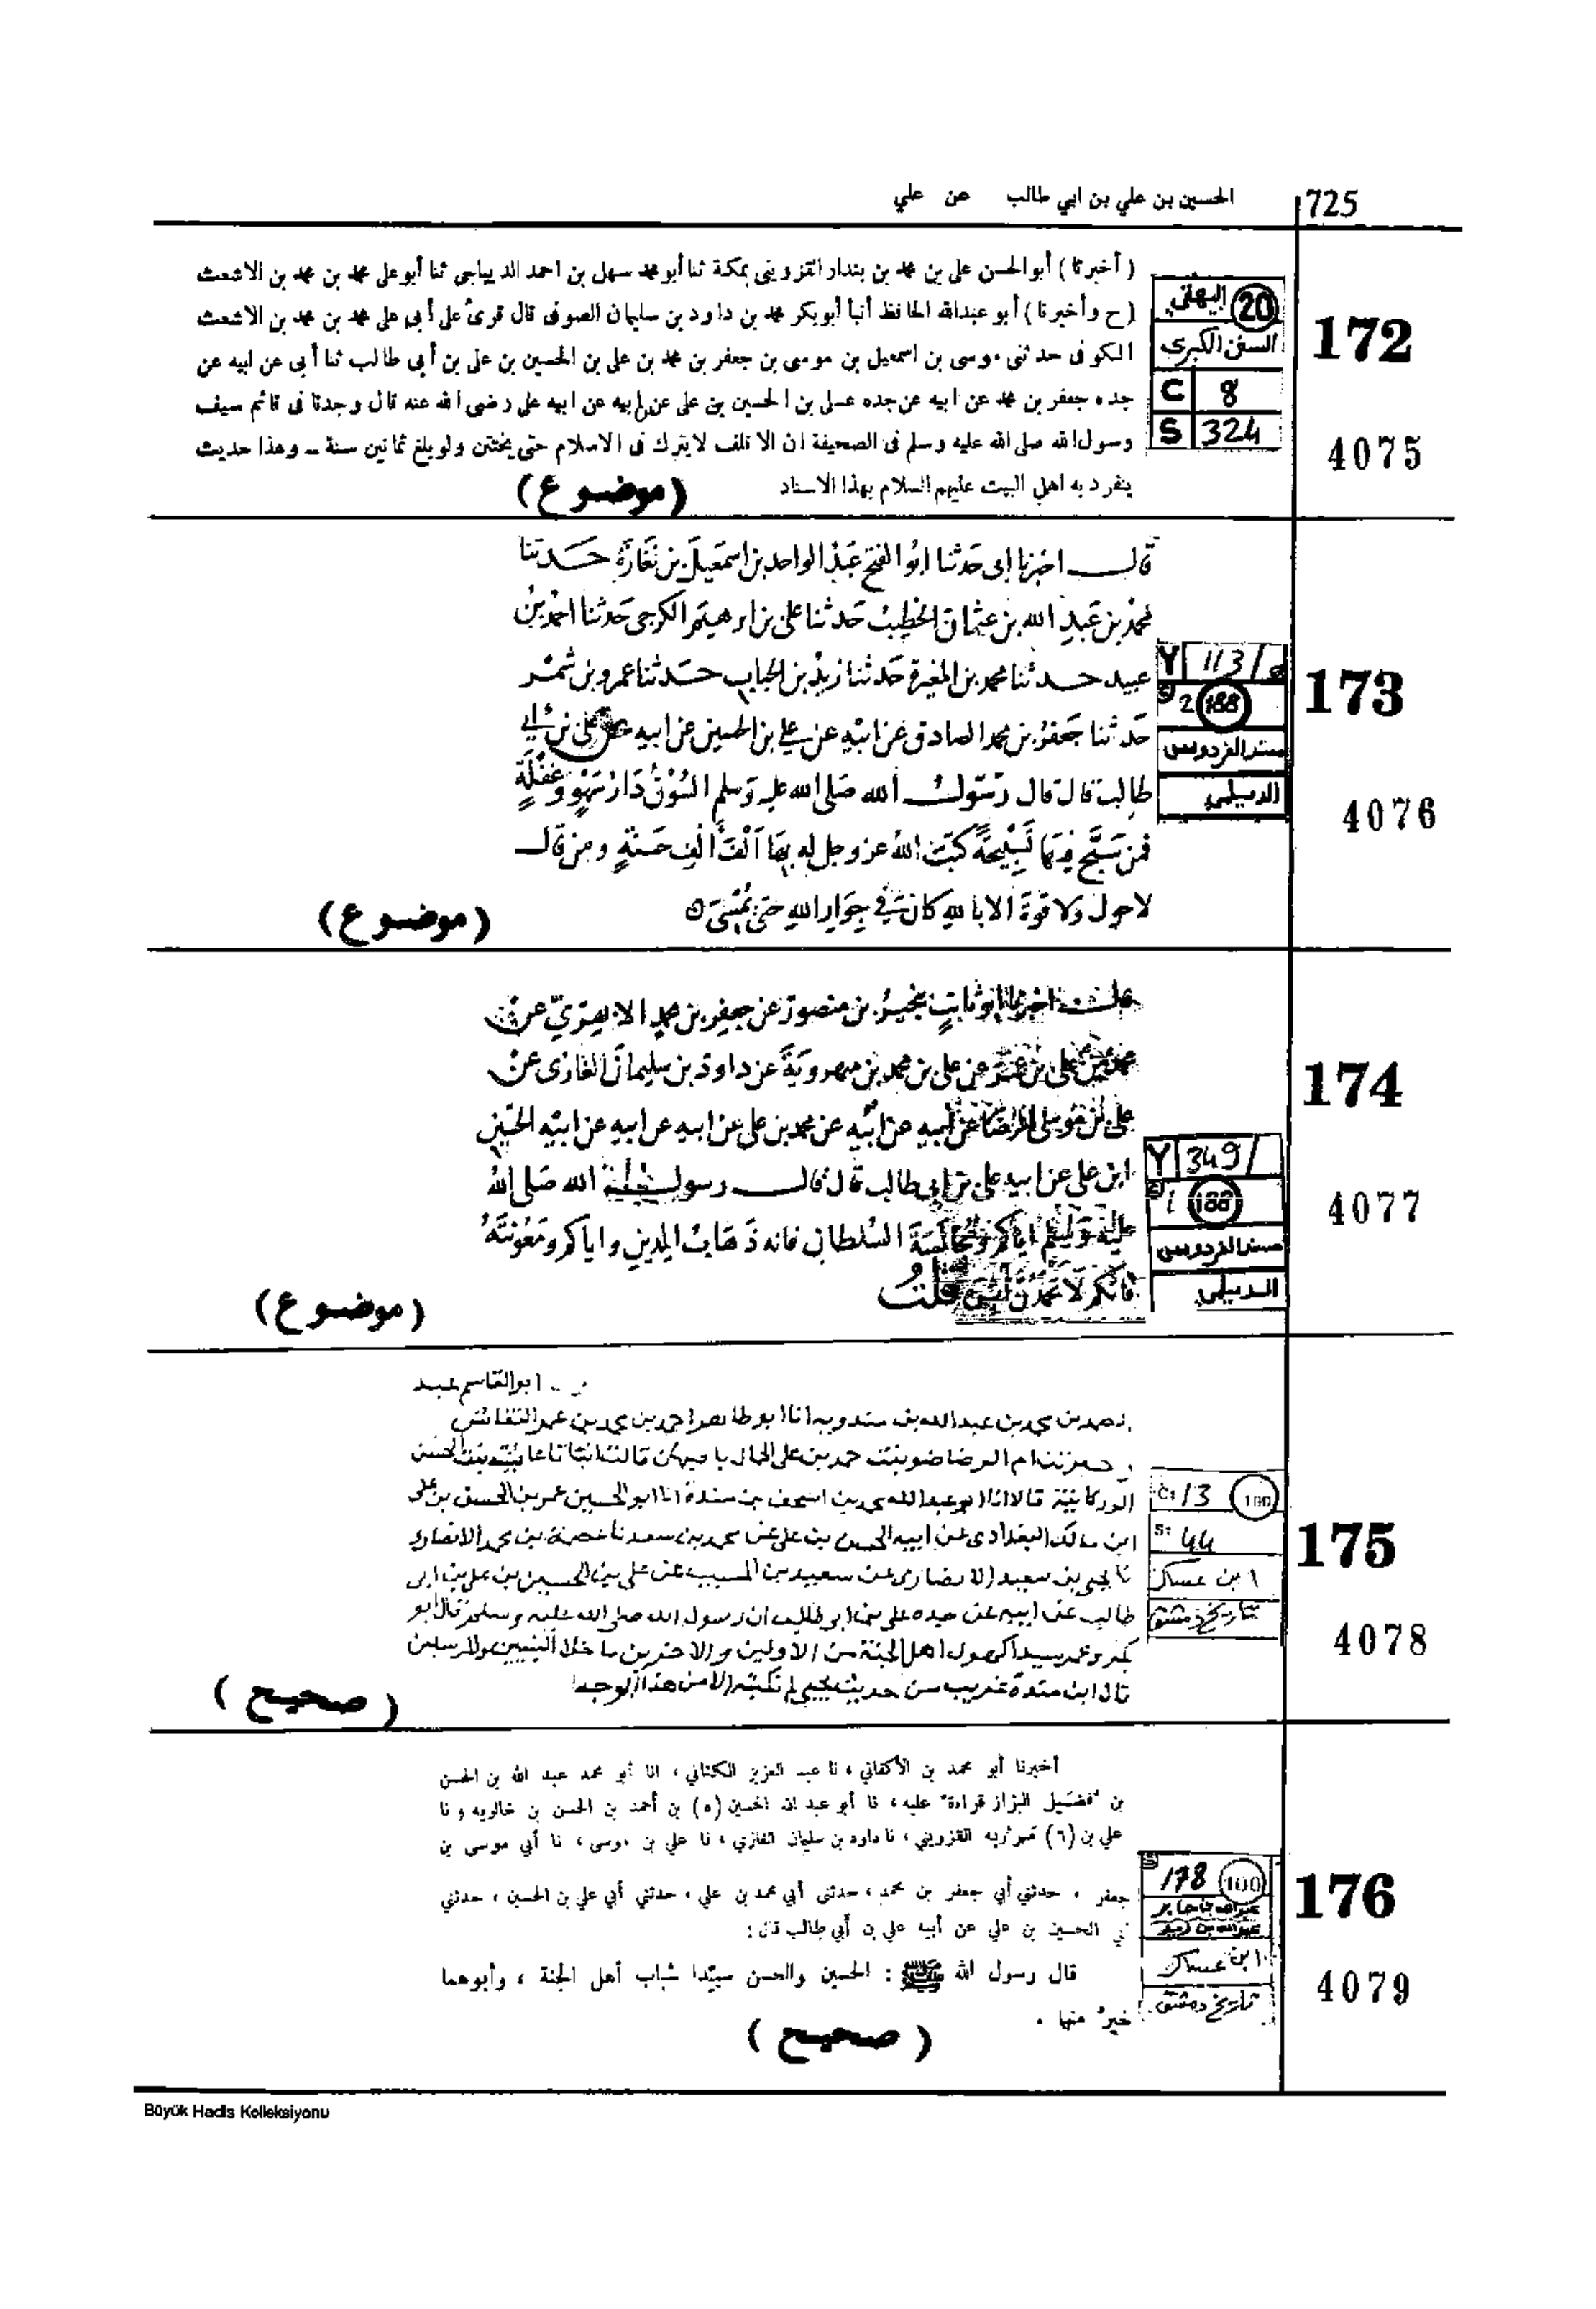 725
الحسين بن علي بن ابي طالب عن علي
( أخبرنا ) أبو الحسن علي بن محمد بن بندار القزوينى بمكة ثنا أبو محمد سهل بن احمد الديباجى ثنا أبو على محمد بن محمد بن الاشعث
( ح وأخبرنا ) أبو عبدالله الحافظ أنبأ أبو بكر محمد بن داود بن سليمان الصوفى قال قرئ على أبى على محمد بن محمد بن الاشعث
الكوفى حدثنى موسى بن اسمعيل بن موسى بن جعفر بن محمد بن على بن الحسين بن على بن أبى طالب ثنا أبى عن ابيه عن
جده جعفر بن محمد عن ابيه عن جده على بن الحسين بن على عن ابيه عن ابيه على رضى الله عنه قال وجدنا فى قائم سيف
رسول الله صلى الله عليه وسلم فى الصحيفة ان الاقلف لا يترك فى الاسلام حتى يختتن ولو بلغ ثمانين سنة - وهذا حديث
ينفرد به اهل البيت عليهم السلام بهذا الاسناد
(موضوع)
البيهقي 20
السنن الكبرى
C 8
S 324
172
4075
قال اخبرنا ابى حدثنا ابو الفتح عبد الواحد بن اسمعيل بن نغارة حدثنا
محمد بن عبد الله بن عثمان الخطيب حدثنا على بن ابرهيم الكرجى حدثنا احمد بن
عبيد حدثنا محمد بن المغيرة حدثنا زيد بن الحباب حدثنا عمرو بن شمر
حدثنا جعفر بن محمد الصادق عن ابيه عن على بن الحسين عن ابيه عن على بن ابي
طالب قال قال رسول الله صلى الله عليه وسلم السُوْقُ دَارُ سَهْوٍ وغَفْلَةٍ
فمن سبّح فيها تسبيحة كتب الله عز وجل له بها الف الف حسنة ومن قال
لا حول ولا قوة الا بالله كان في جوار الله حتى يمسى
(موضوع)
Y 113/
S 2 188
مسند الفردوس
الديلمي
173
4076
اخبرنا ابو ثابت بنجير بن منصور عن جعفر بن محمد الابهرى عن
على بن محمد بن مهروية عن داود بن سليمان الغازى عن
على بن موسى الرضا عن ابيه عن ابيه عن محمد بن على عن ابيه عن ابيه عن ابيه الحسين
ابن على عن ابيه على بن ابى طالب قال قال رسول الله صلى الله
عليه وسلم اياكم ومجالسة السلطان فانه ذهاب الدين واياكم ومعونته
فانكم لا تحمدن
(موضوع)
Y 349/
S 1 188
مسند الفردوس
الديلمي
174
4077
ابو القاسم عبد
الصمد بن محمد بن عبد الله بن مندويه انا ابو طاهر احمد بن محمد بن عمر النقاش
ام الرضا ضو بنت حمد بن على الحبال باصبهان قالت انبا عائشة بنت الحسن
الوركانية قالا انا ابو عبد الله محمد بن اسحق بن مندة انا ابو الحسين عمر بن الحسن بن على
ابن مالك البغدادى عن ابيه الحسن بن على عن محمد بن سعد نا عصمة بن محمد الانصارى
نا يحيى بن سعيد الانصارى عن سعيد بن المسيب عن على بن الحسين بن على بن ابى
طالب عن ابيه عن جده على بن ابى طالب ان رسول الله صلى الله عليه وسلم قال ابو
بكر وعمر سيدا كهول اهل الجنة من الاولين والاخرين ما خلا النبيين والمرسلين
قال ابن مندة غريب من حديث يحيى لم نكتبه الا من هذا الوجه
( صحيح )
C: 13 100
S: 44
ابن عساكر
تاريخ دمشق
175
4078
أخبرنا أبو محمد بن الأكفاني ، نا عبد العزيز الكتاني ، انا أبو محمد عبد الله بن الحسن
بن فضيل البزاز قراءة عليه ، نا أبو عبد الله الحسين (٥) بن أحمد بن الحسن بن خالويه ونا
علي بن (٦) مهرويه القزويني ، نا داود بن سليمان الغازي ، نا علي بن موسى ، نا أبي موسى بن
جعفر ، حدثني أبي جعفر بن محمد ، حدثني أبي محمد بن علي ، حدثني أبي علي بن الحسين ، حدثني
أبي الحسين بن علي عن أبيه علي بن أبي طالب قال :
قال رسول الله ﷺ : الحسين والحسن سيّدا شباب أهل الجنة ، وأبوهما
خيرٌ منهما .
( صحيح )
S 178 100
عبدالله بن جابر
عبدالله بن زيد
ابن عساكر
تاريخ دمشق
176
4079
Büyük Hadis Kolleksiyonu